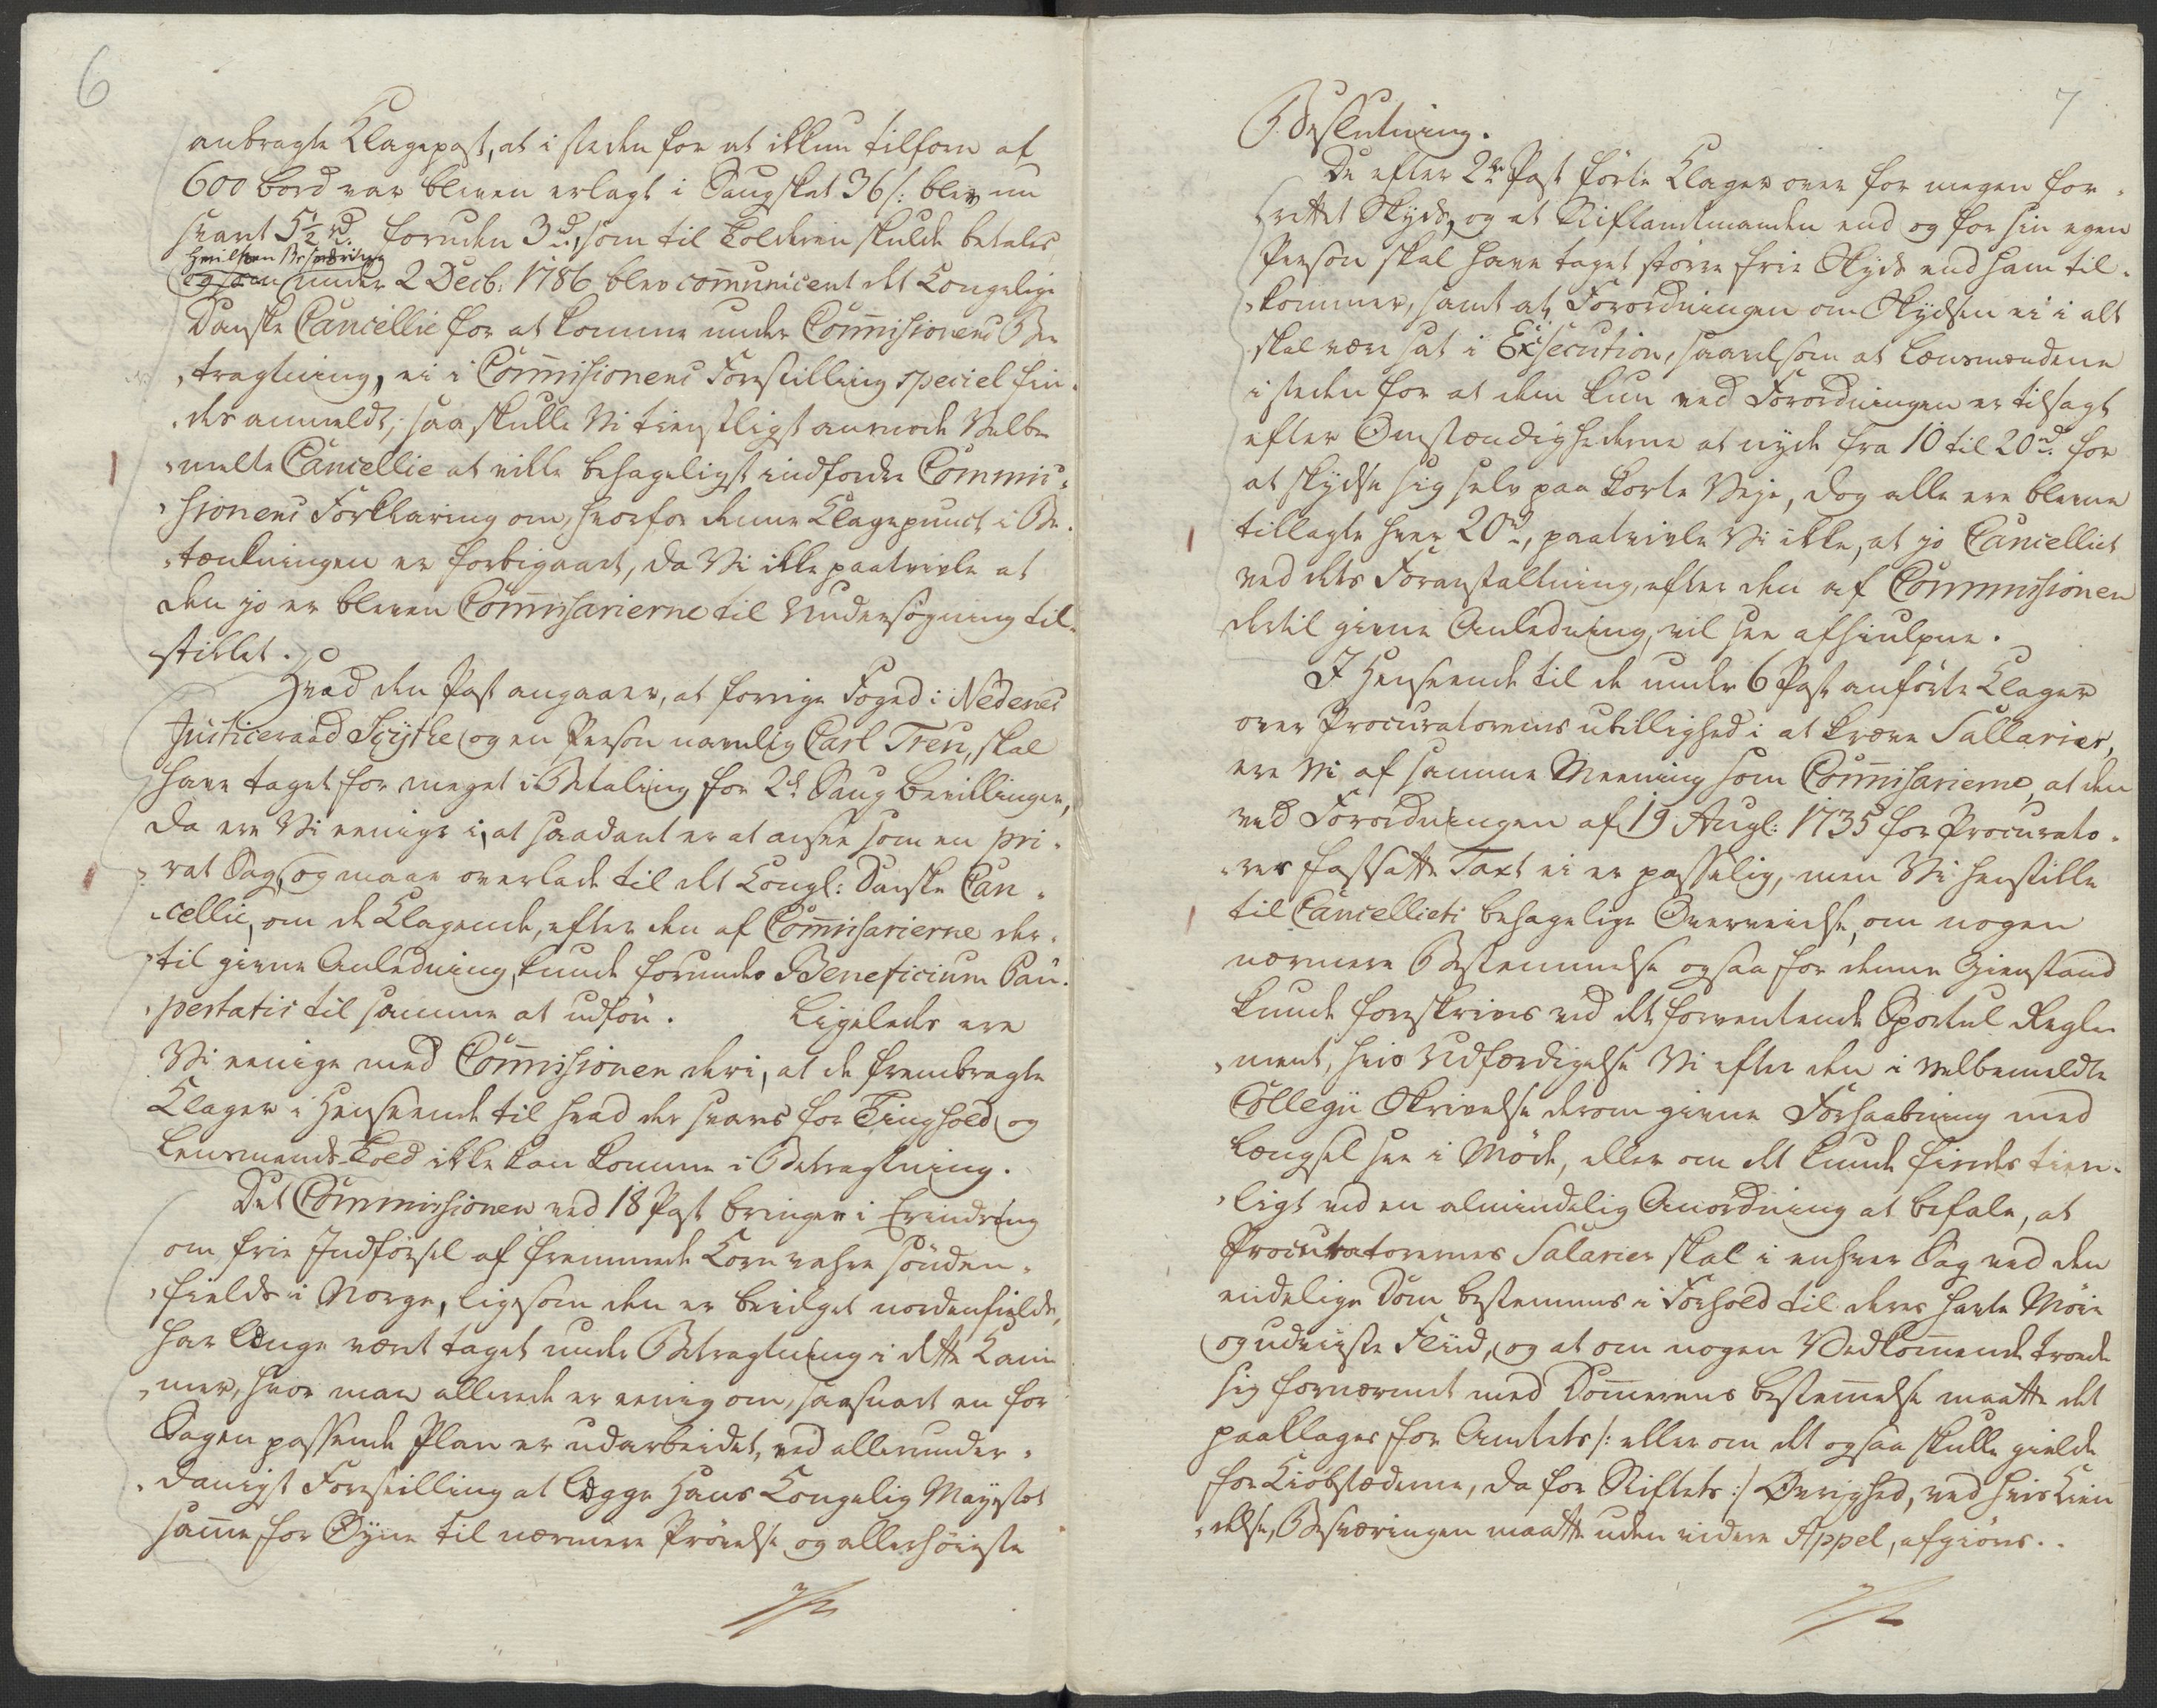 6
anbragte Klagepost, at i steden for at ikkun tilforn af
600 bord var bleven erlagt i Saugskat 36 s: blev nu
svart 5½ rd. foruden 3 d., som til Tolderen skulde betales
hvilken Besværing
og som under 2 Decb: 1786 blev communiceret det Kongelige
Danske Cancellie for at komme under Commissionens Be
tragtning, ei i Commissionens Forestilling speciel fin-
des anmeldt; saa skulle Vi tienstligst anmode Velbe
melte Cancellie at ville behageligst indfordre Commis-
sionens Forklaring om, hvorfor denne Klagepunct i Be-
tænkningen er forbigaaet, da Vi ikke paatvivle at
den jo er bleven Commissarierne til Undersøgning til-
stillet.
Hvad den Post angaaer, at forrige Foged i Nedenes
Justiceraad Scythe og en Person navnlig Carl Treu, skal
have taget for meget i Betaling for 2de Saug bevillinger,
da ere Vi eenige i, at saadant er at ansee som en pri-
vat Sag, og maae overlade til det Kongl: Danske Can-
cellie, om de Klagende, efter den af Commissarierne der-
til givne Anledning, kunde forundes Beneficium Pau-
pertatis til samme at udføre. Ligeleds ere
Vi eenige med Commissionen deri, at de frembragte
Klager i Henseende til hvad der svares for Tinghold og
Lensmands-Told ikke kan komme i Betragtning.
Det Commissionen ved 18 Post bringer i Erindring
om frie Indførsel af fremmede Korn vahre sønden-
fields i Norge, ligesom den er bevilget nordenfields,
har længe været taget under Betragtning i dette Kam
mer, hvor man allerede er eenig om, saasnart en for
Sagen passende Plan er udarbeidet, ved allerunder-
danigst Forestilling at lægge Hans Kongelig Mayestet
samme for Øyne til nærmere Prøvelse og allerhøieste
7
Beslutning.
De efter 2den Post førte Klager over for megen for-
rettet Skyds, og at Stiftamtmanden end og for sin egen
Person skal have taget større frie Skyds end ham til-
kommer, samt at Forordningen om Skydsen ei i alt
skal være sat i Execution, saavelsom at Lensmændene
i steden for at dem kun ved Forordningen er tilsagt
efter Omstændighederne at nyde fra 10 til 20 rd. for
at skydse sig selv paa korte Veje, dog alle ere blevne
tillagte hver 20 rd, paatvivle Vi ikke, at jo Cancelliet
ved dets Foranstaltning, efter den af Commissionen
dertil givne Anledning, vil see afhiulpne.
I Henseende til de under 6 Post anførte Klager
over Procuratorernes ubillighed i at kræve Sallarier,
ere Vi af samme Meening som Commissarierne, at den
ved Forordningen af 19 Augl: 1735 for Procurato-
rer fastsatte Taxt ei er passelig, men Vi henstille
til Cancelliets behagelige Overveielse, om nogen
nærmere Bestemmelse ogsaa for denne Gienstand
kunde foreskrives ved det forventende Sportul Regle-
ment, hvis Udfærdigelse Vi efter den i velbemeldte
Collegii Skrivelse derom givne Forhaabning med
Længsel see i Møde, eller om det kunde findes tien-
ligt ved en almindelig Anordning at befale, at
Procuratorernes Salarier skal i enhver Sag ved den
endelige Dom bestemmes i Forhold til deres havte Møie
og udviiste Fliid, og at om nogen Vedkommende troede
sig fornærmet med Dommerens bestemmelse maatte det
paaklages for Amtets /: eller om det ogsaa skulle gielde
for Kiøbstæderne, da for Stiftets :/ Øvrighed, ved hvis Kien
delse, Besværingen maatte uden videre Appel, afgiøres.